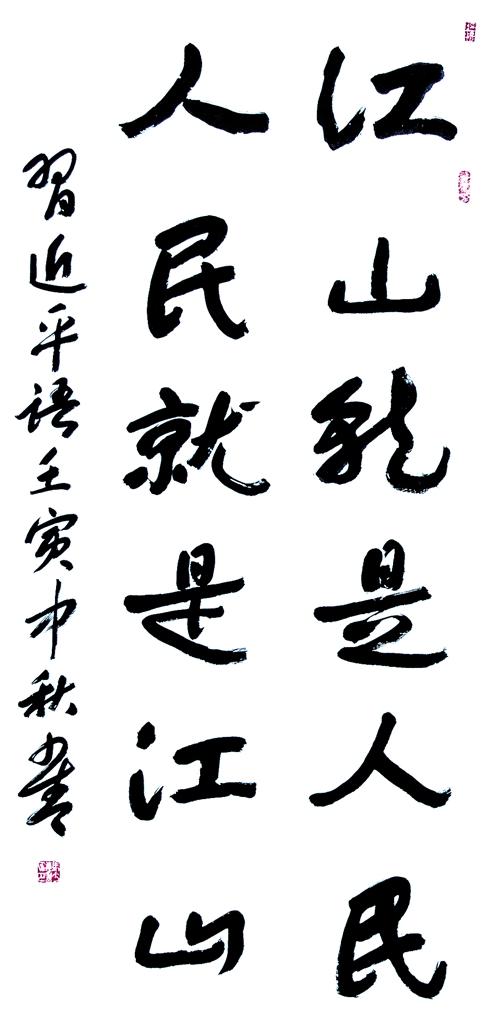 江山就是人民
人民就是江山
習近平語壬寅中秋書